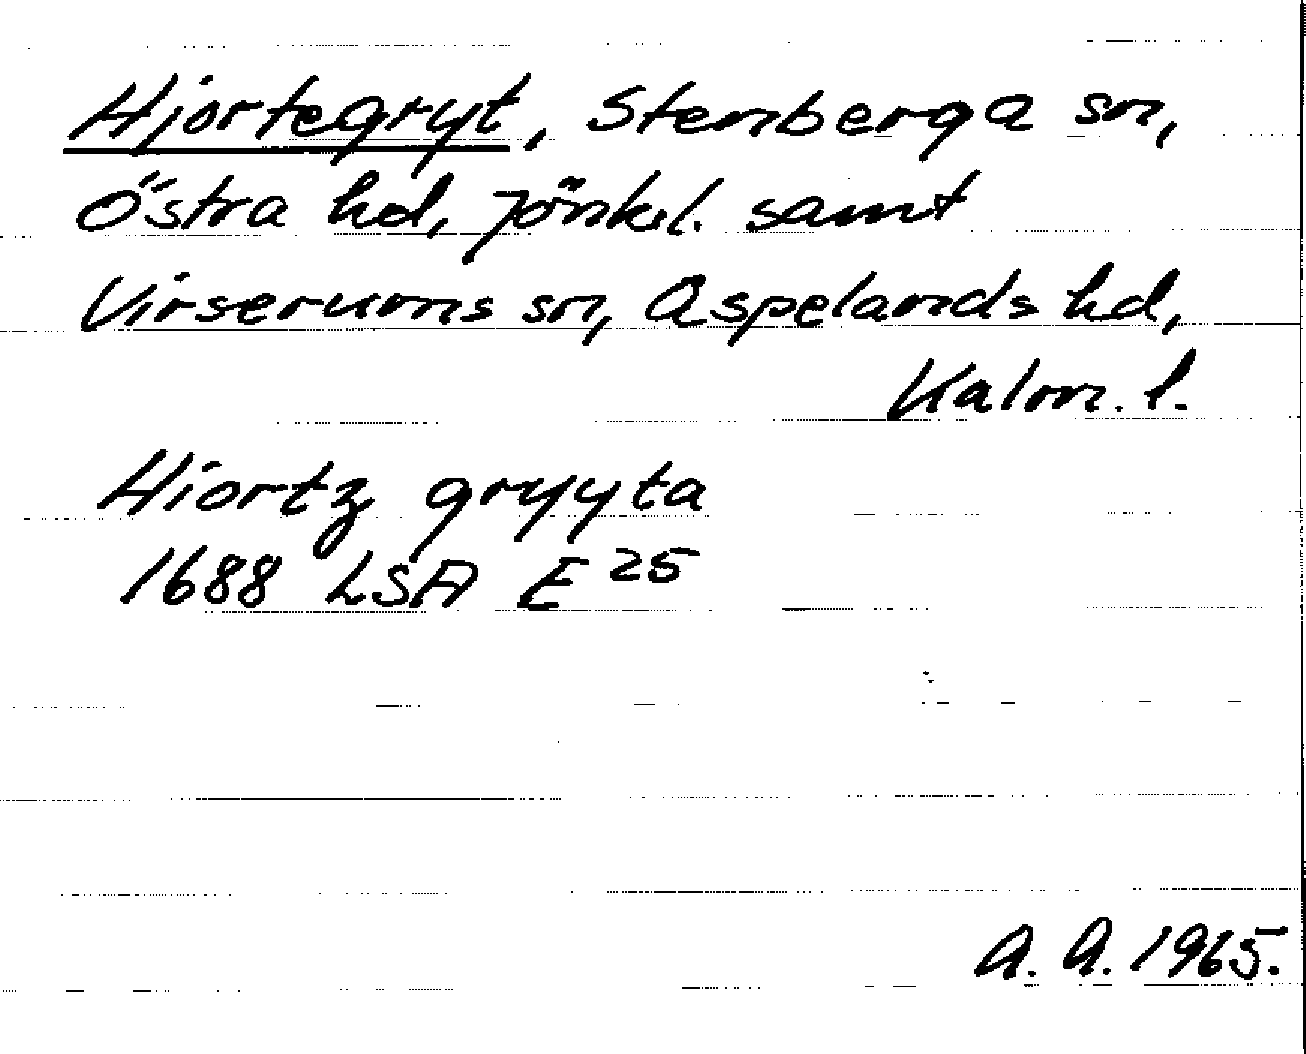 Hjortegryt, Stenberga sn,
Östra hd, Jönk.l. samt
Virserums sn, Aspelands hd,
Kalm. l.
Hiortz gryyta
1688 LSA E 25
A. A. 1965.